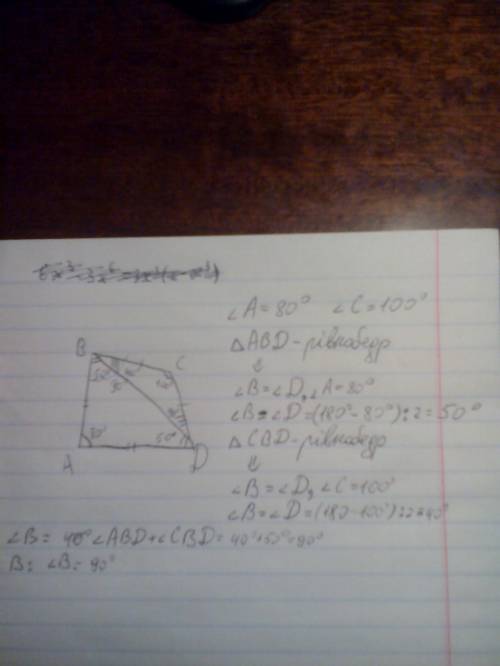 ∠A=80° ∠C=100°
△ABD-рівнобедр
⇓
∠B=∠D, ∠A=80°
∠B=∠D=(180°-80°):2=50°
△CBD-рівнобедр
⇓
∠B=∠D, ∠C=100°
∠B=∠D=(180-100°):2=40°
B
C
80°
50°
A
D
∠B= ∠ABD+∠CBD=40°+50°=90°
В: ∠B=90°